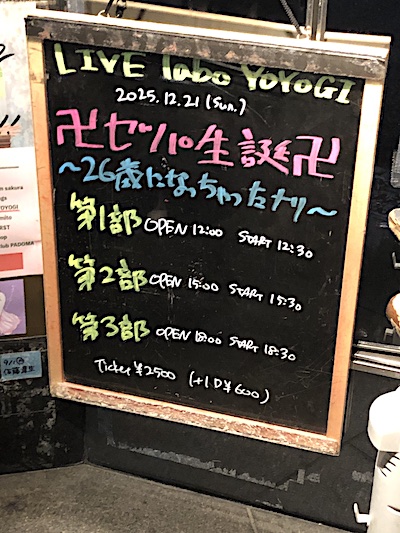 LIVE labo YOYOGI
2025.12.21 (Sun.)
卍セツパ生誕卍
～26歳になっちゃったナリ～
第1部 OPEN 12:00 START 12:30
第2部 OPEN 15:00 START 15:30
第3部 OPEN 18:00 START 18:30
Ticket ¥2500 (+1D ¥600)
sakura
YOYOGI
club PADOMA